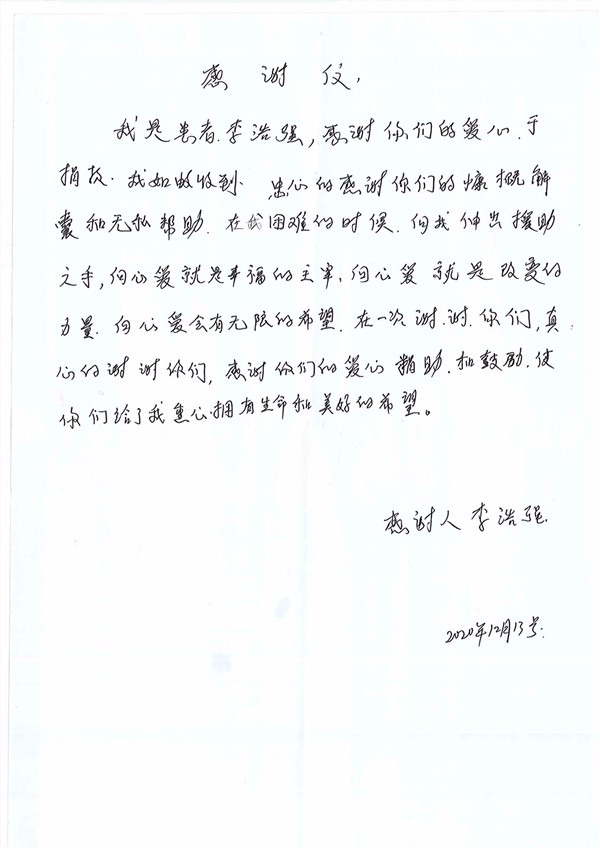 感谢信,
我是患者.李浩强,感谢你们的爱心.于
捐技.我如故收到 忠心的感谢你们的慷概解
囊和无私帮助.在我困难的时候.向我伸出援助
之手,向心爱就是幸福的主宰.向心爱就是改变的
力量.向心爱会有无限的希望.在一次.谢.谢.你们,真
心的谢谢你们,感谢你们的爱心捐助.和鼓励.使
你们给了我重心.拥有生命和美好的希望。
感谢人李浩强.
2020年12月13号.